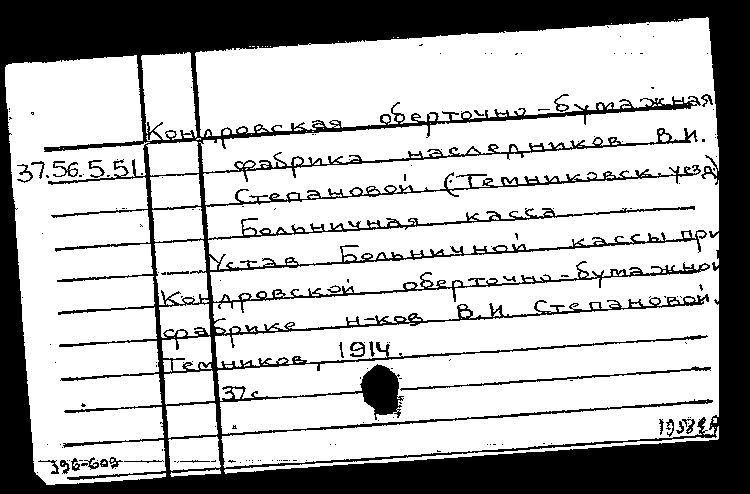 Кондровская оберточно-бумажная
37.56.5.51. фабрика наследников В.И.
Степановой. (Темниковск. уезд)
Больничная касса
Устав Больничной кассы при
Кондровской оберточно-бумажной
фабрике н-ков В.И. Степановой.
Темников, 1914.
37 с.